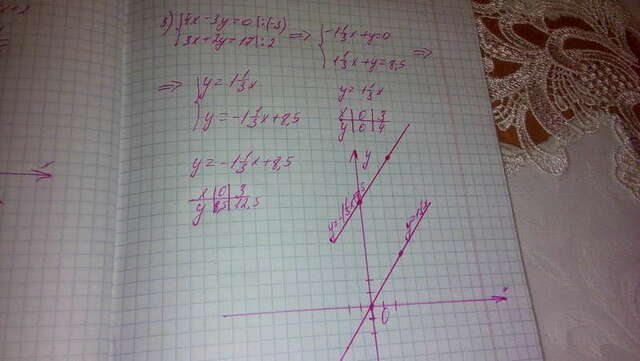 3) { 4x-3y=0 |:(-3)
3x+2y=17 |:2 => { -1 1/3x+y=0
1 1/3x+y=8,5 =>
=> { y=1 1/3x
y=-1 1/3x+8,5
y=1 1/3x
x | 0 | 3
y | 0 | 4
y=-1 1/3x+8,5
x | 0 | 3
y | 8,5 | 12,5
y
x
0